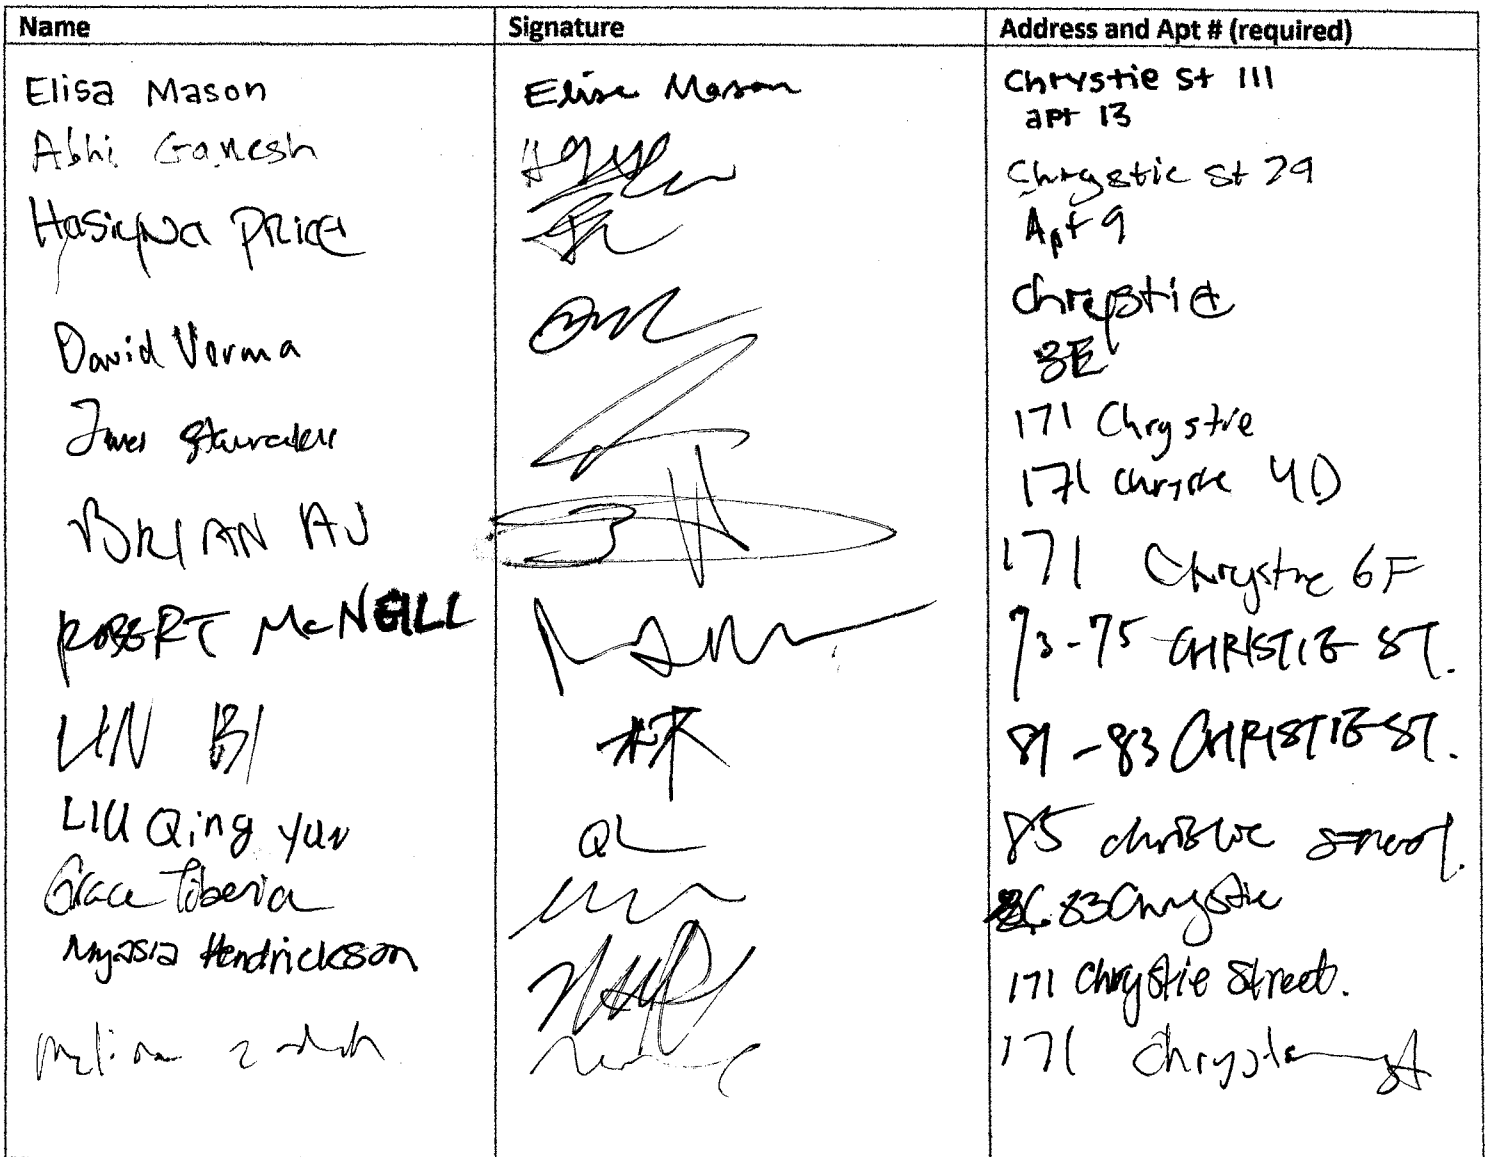 Name Signature Address and Apt # (required)
Elisa Mason Elisa Mason Chrystie St 111
apt 13
Abhi Ganesh Chrystie St 29
Apt 9
PRICE
Chrystie
David Verma 3E
171 Chrystie
171 Chrystie 4D
BRIAN AU
171 Chrystie 6F
ROBERT McNEILL 73-75 CHRISTIE ST.
LIN BI 林 81-83 CHRISTIE ST.
LIU Qing Yun QL 85 christie street.
Grace 83 Chrystie
Myasia Hendrickson 171 Chrystie Street.
171 st